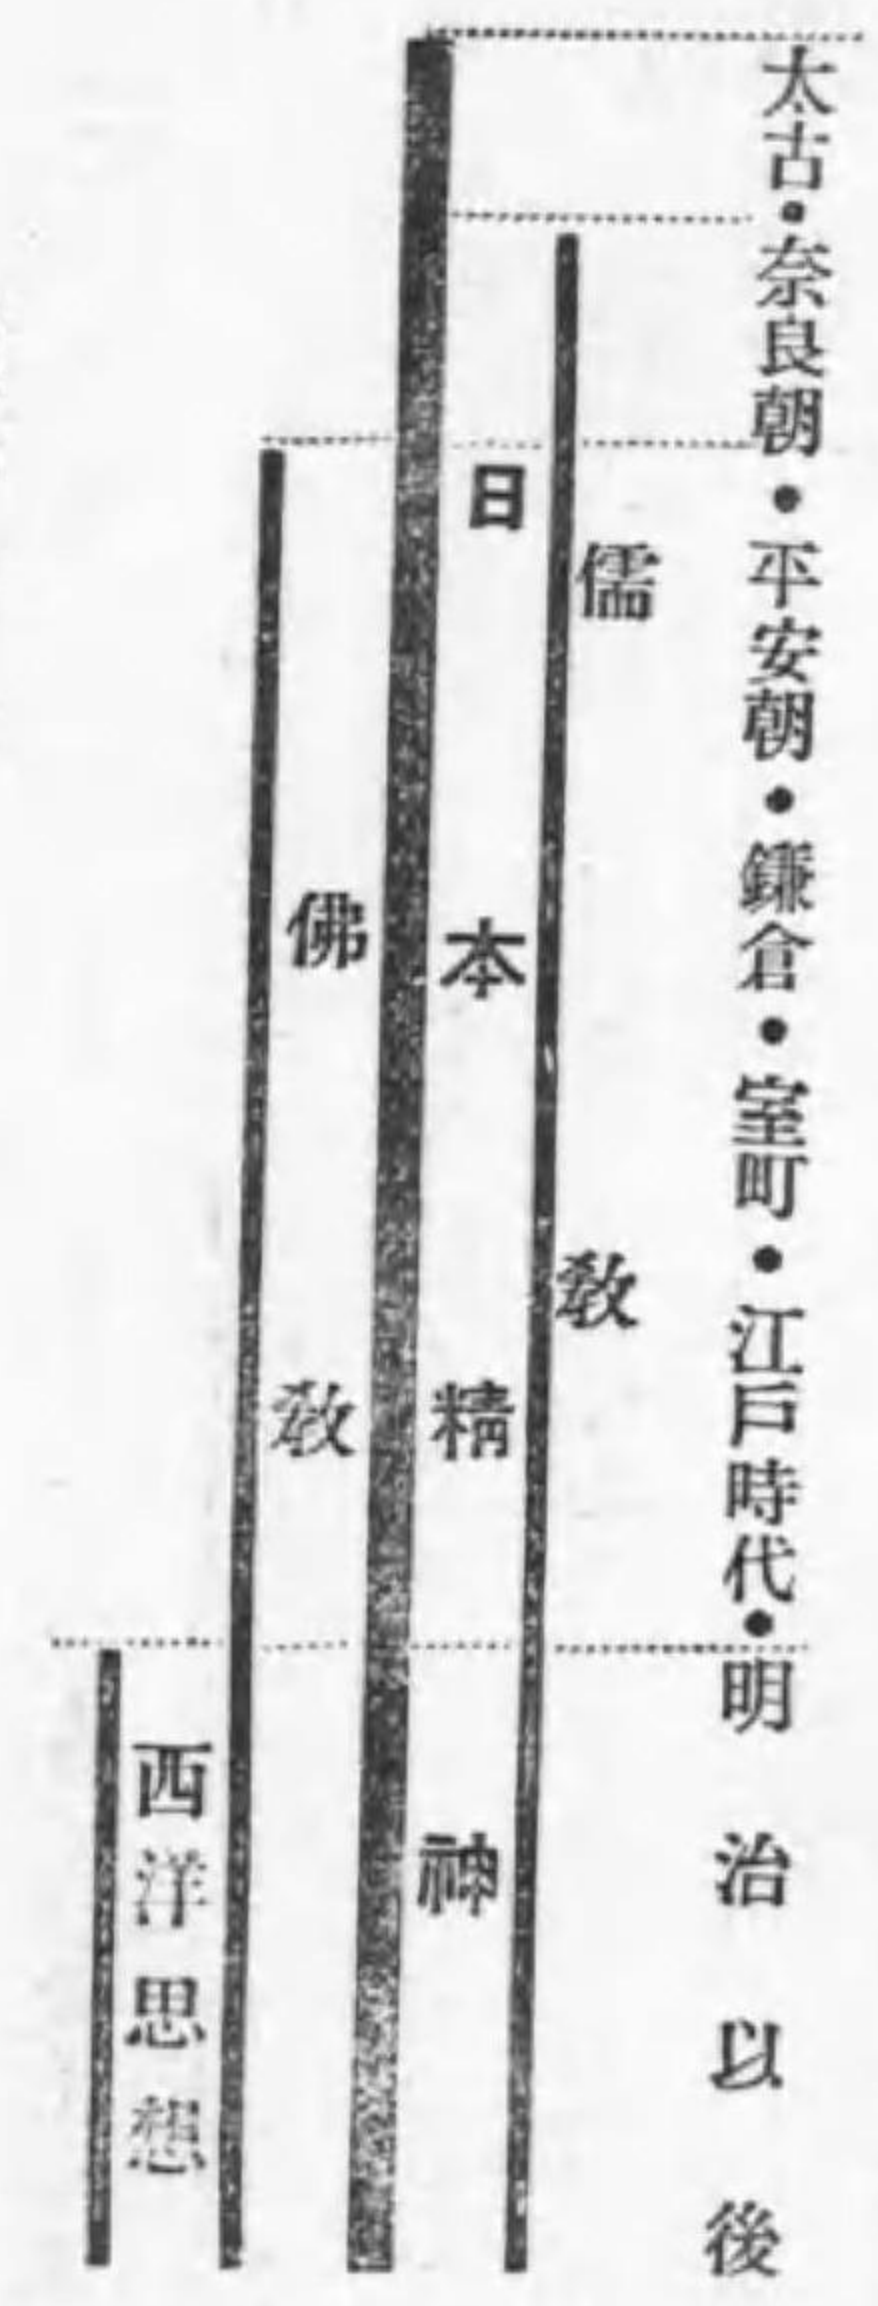 太古・奈良朝・平安朝・鎌倉・室町・江戸時代・明治以後
儒教
日本精神
佛教
西洋思想